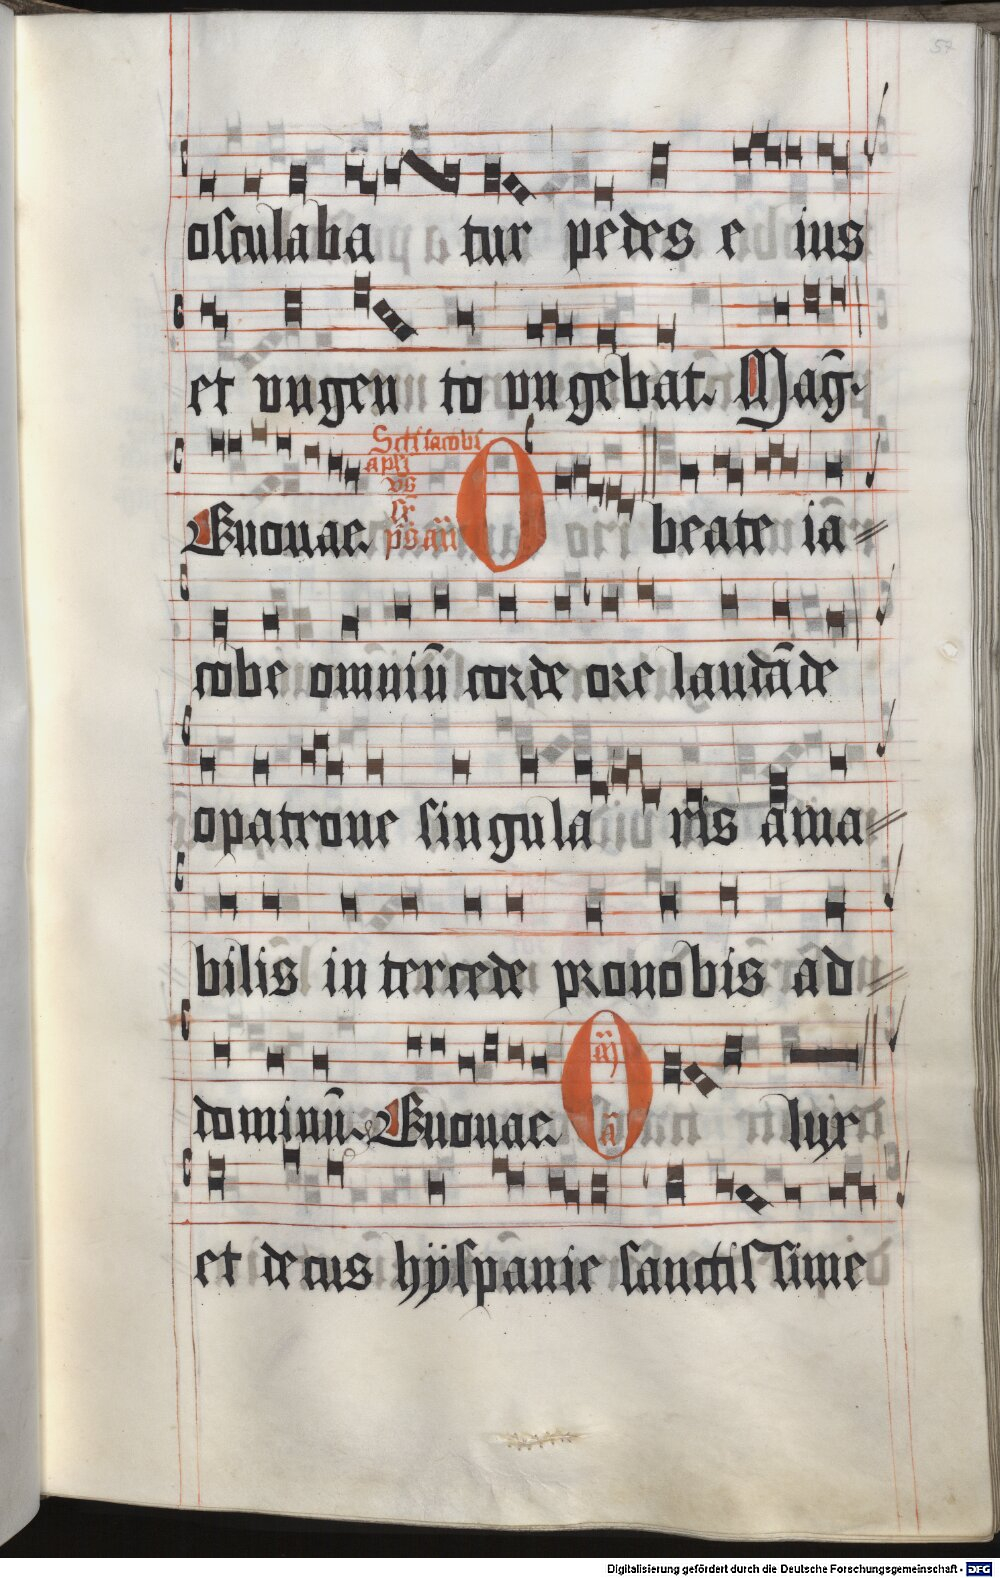 57
osculaba tur pedes e ius
et vngen to vngebat. Mag̅.
Scti iacobi
apli
Euouae. O beate ia⸗
cobe omniū corde ore laudāde
o patrone singula ris ama⸗
bilis in tercede pro nobis ad⸗
dominū. Euouae. O lux
et decus hÿspanie sanctissime
Digitalisierung gefördert durch die Deutsche Forschungsgemeinschaft - DFG